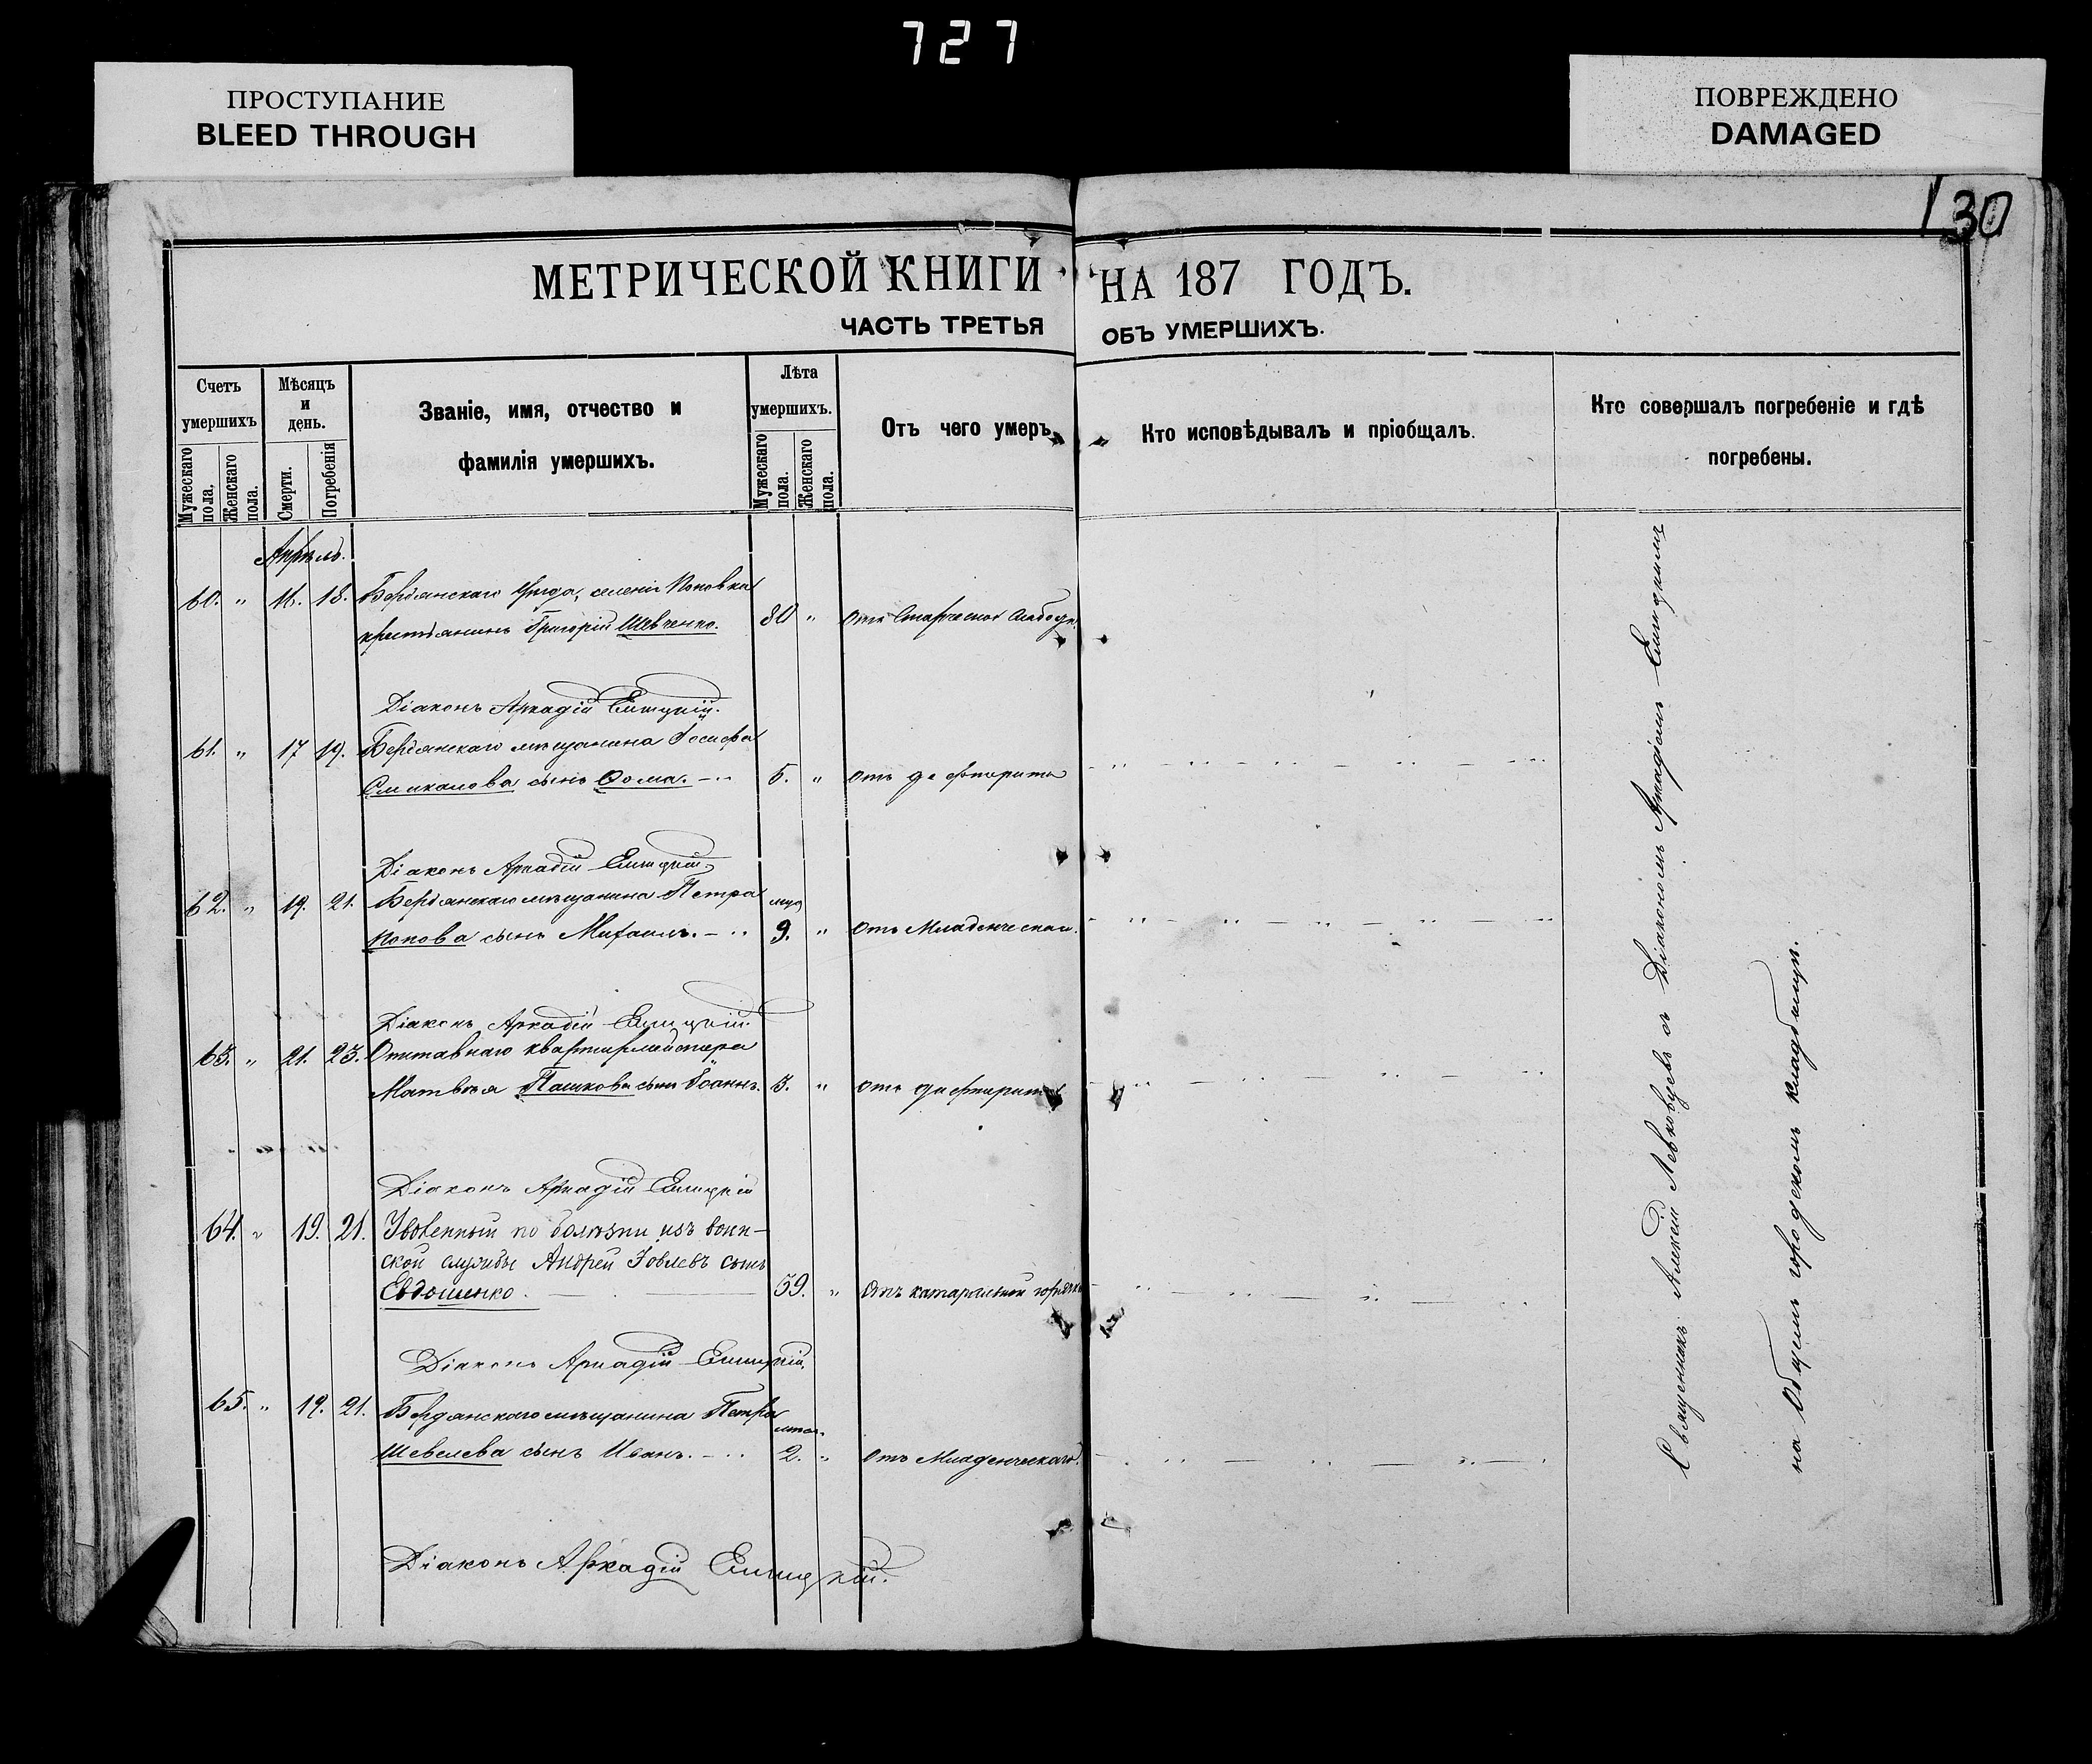 727
ПРОСТУПАНИЕ
BLEED THROUGH
ПОВРЕЖДЕНО
DAMAGED
130
МЕТРИЧЕСКОЙ КНИГИ НА 187 ГОДЪ.
ЧАСТЬ ТРЕТЬЯ ОБЪ УМЕРШИХЪ.
Счетъ умершихъ
Мужескаго пола.
Женскаго пола.
Мѣсяцъ и день.
Смерти.
Погребенія
Званіе, имя, отчество и
фамилія умершихъ.
Лѣта умершихъ.
Мужескаго пола.
Женскаго пола.
Отъ чего умеръ.
Кто исповѣдывалъ и пріобщалъ.
Кто совершалъ погребеніе и гдѣ
погребены.
Апрѣль.
60. " 16. 18. Бердянскаго уѣзда, селенія Поповка
крестьянинъ Григорій Шевченко. 80 " Отъ Старческой
Діаконъ Аркадій
61. " 17 19. Бердянскаго мѣщанина Іосифа
сынъ Ѳома. 5. " Отъ дифтерита
Діаконъ Аркадій
62. " 19. 21. Бердянскаго мѣщанина Петра
Попова сынъ Михаилъ. 9. " Отъ Младенческой.
Діаконъ Аркадій
63. " 21. 23. Отставнаго квартирмейстера
Матвѣя Пашкова сынъ Іоаннъ. 3. " Отъ дифтерита
Діаконъ Аркадій
64. " 19. 21. Уволенный по болѣзни изъ воин-
ской службы Андрей Іовлевъ сынъ
Евдошенко. 59. " Отъ катаральной
Діаконъ Аркадій
65. " 19. 21. Бердянскаго мѣщанина Петра
Шевелева сынъ Иванъ. 2. " Отъ Младенческаго.
Діаконъ Аркадій
Священникъ Алексій съ Діакономъ Аркадіемъ
на Общемъ городскомъ кладбищѣ.